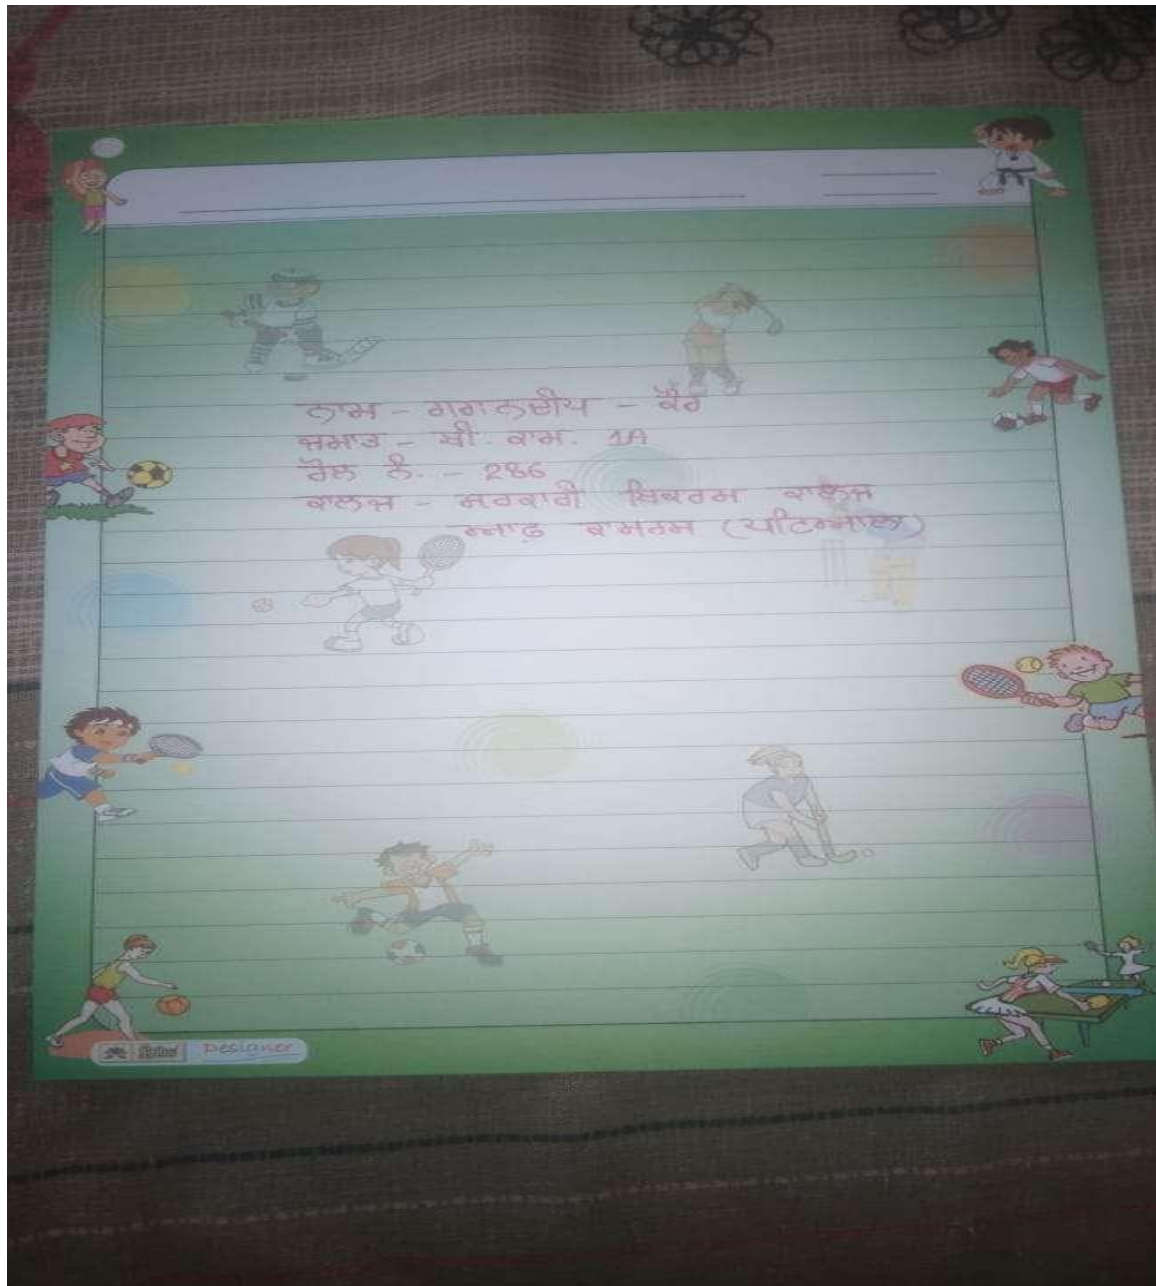 ਨਾਮ - ਗਗਨਦੀਪ - ਕੌਰ
ਜਮਾਤ - ਬੀ. ਕਾਮ. 1A
ਰੋਲ ਨੰ. - 286
ਕਾਲਜ - ਸਰਕਾਰੀ ਬਿਕਰਮ ਕਾਲਜ
ਆਫ਼ ਕਾਮਰਸ (ਪਟਿਆਲਾ)
Designer